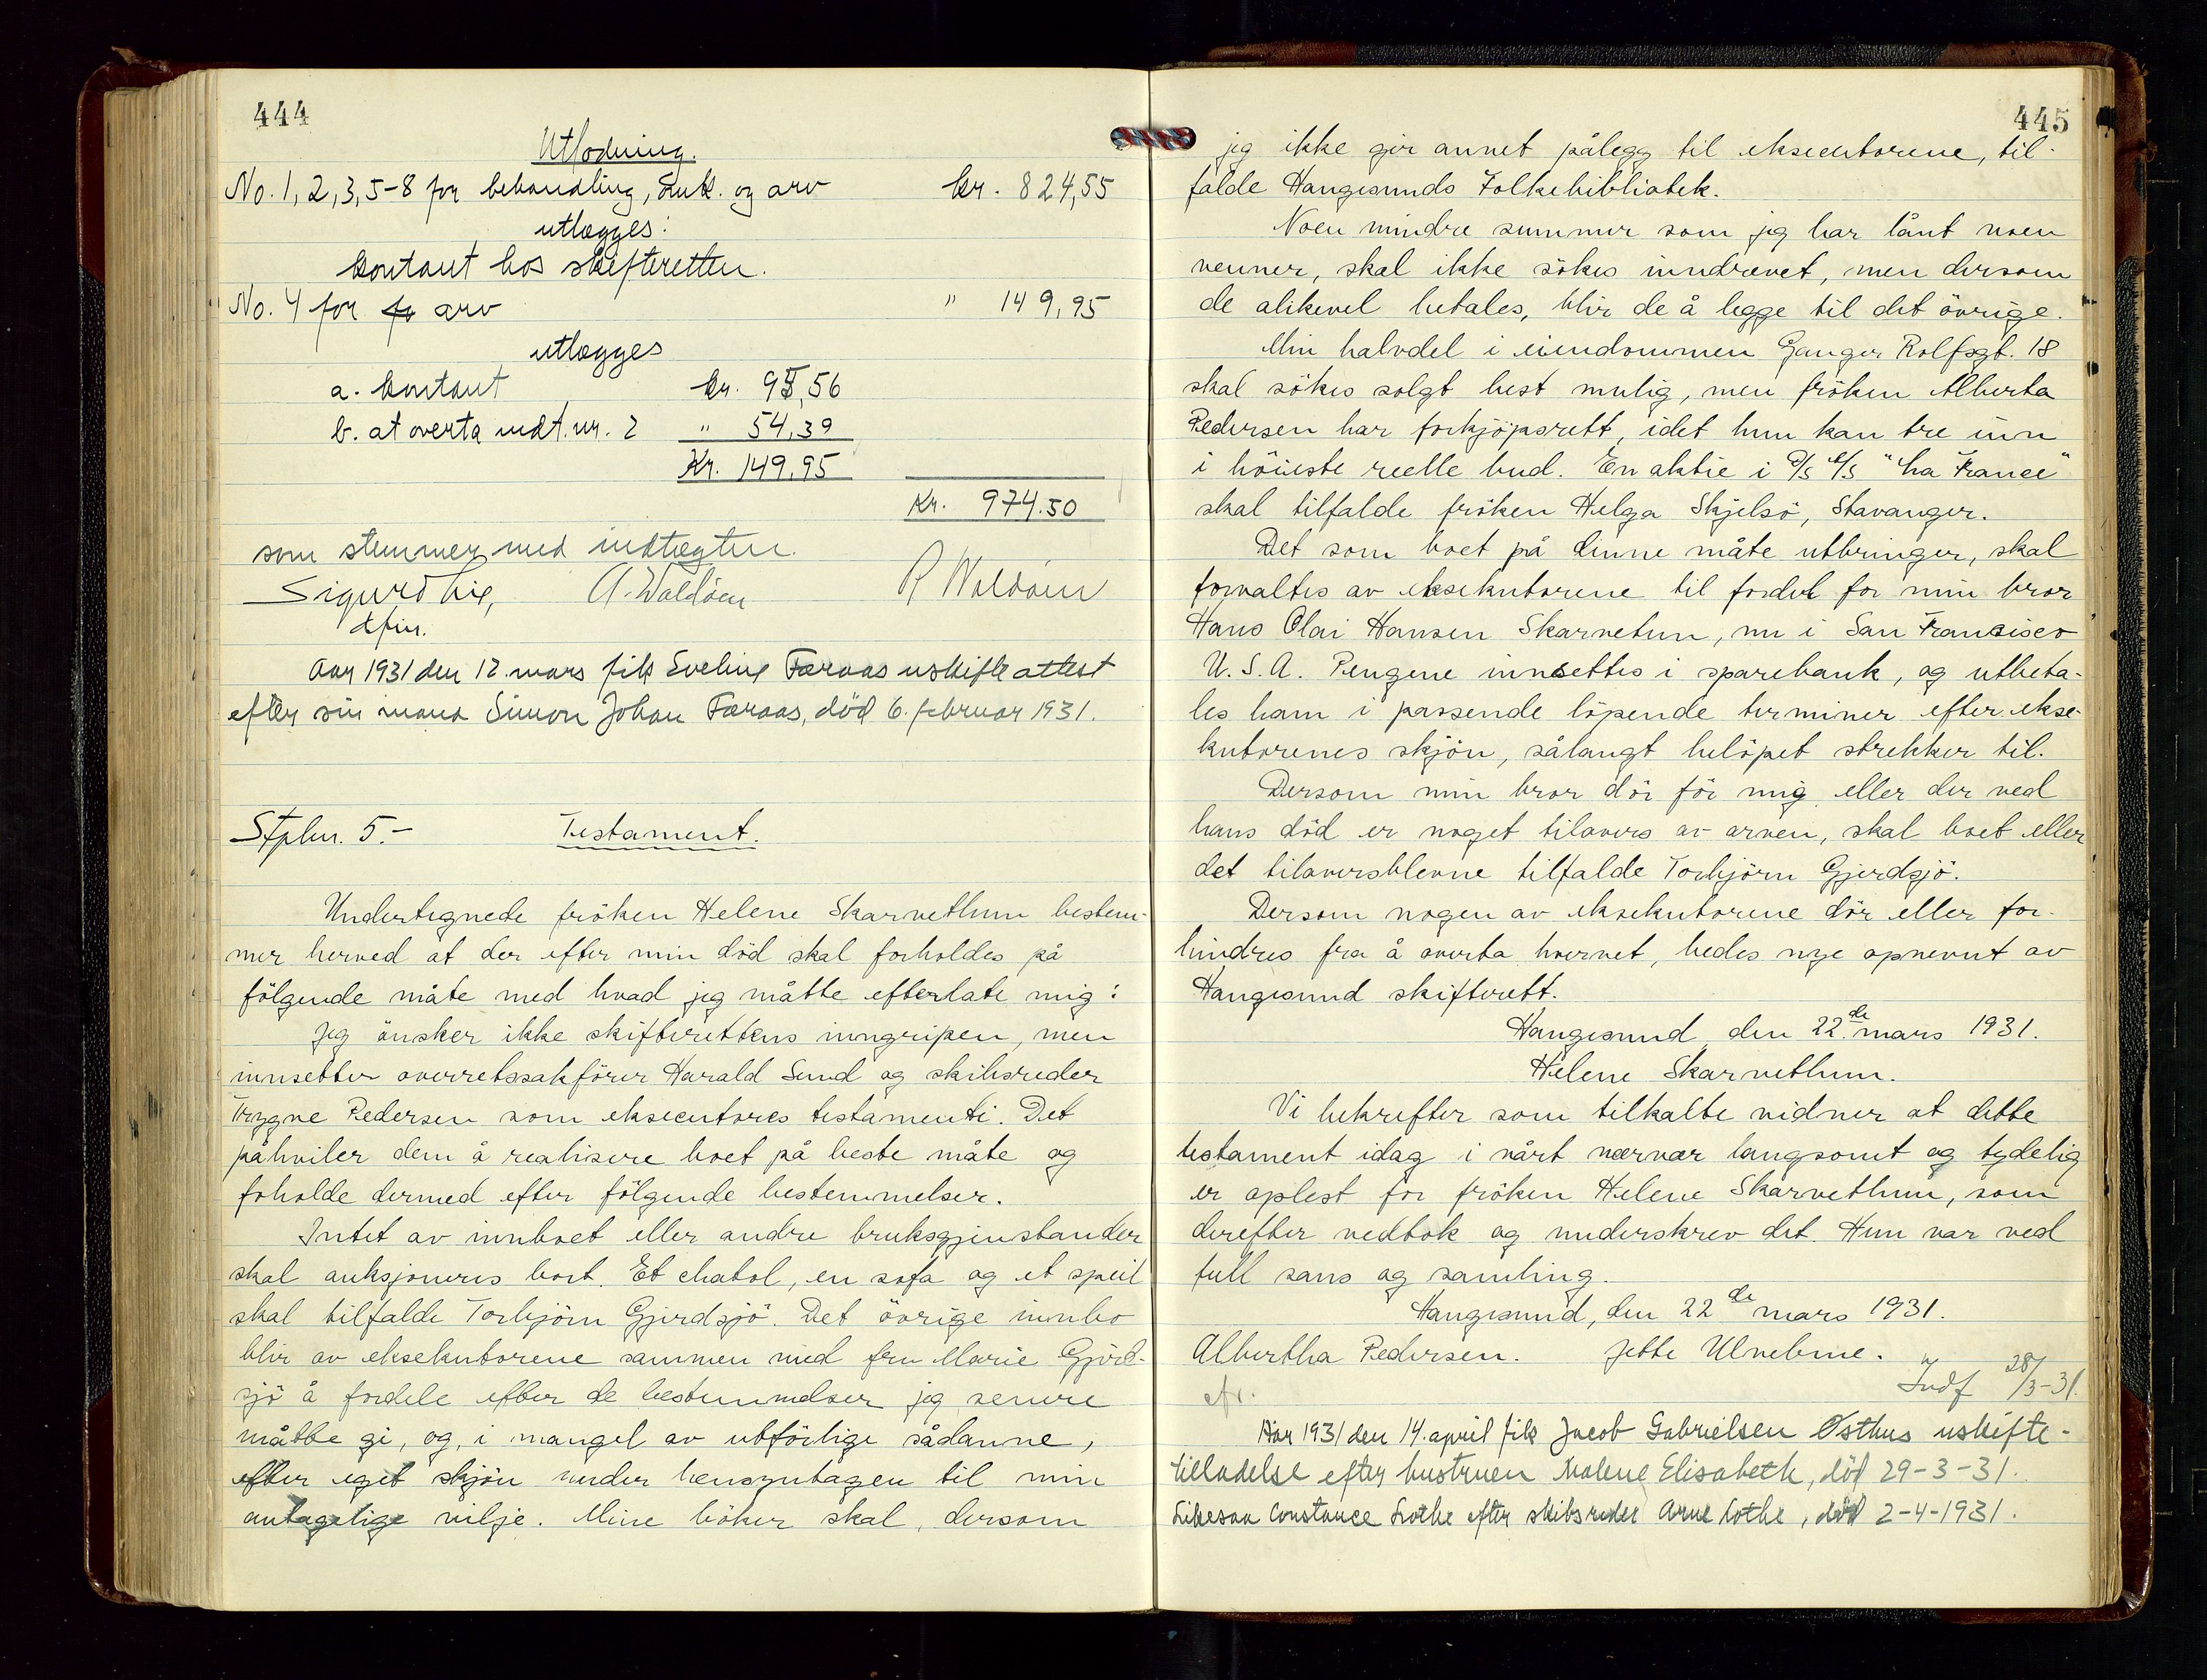 444
Utlodning.
No. 1, 2, 3, 5-8 for behandling, Luk. og arv kr. 824,55
utlægges:
kontant hos skifteretten.
No. 4 for fo arv " 149,95
utlægges
a. kontant kr. 95,56
b. at overta indt. nr. 2 " 54,39
Kr. 149,95
Kr. 974.50
som stemmer med indtægten.
Sigurd Lie, A. Waldøen R Waldøen
dfm.
Aar 1931 den 12. mars fik Eveline Færaas uskifteattest
efter sin mann Simon Johan Færaas, död 6. februar 1931.
Stplm. 5.- Testament.
Undertegnede fröken Helene Skarvethun bestem-
mer herved at der efter min död skal forholdes på
fölgende måte med hvad jeg måtte efterlate mig:
Jeg önsker ikke skifterettens inngripen, men
innsetter overretssakförer Harald Sund og skibsreder
Trygve Pedersen som eksecutores testamenti. Det
påhviler dem å realisere boet på beste måte og
foholde dermed efter fölgende bestemmelser.
Intet av innboet eller andre bruksgjenstander
skal auksjoneres bort. Et chatol, en sofa og et speil
skal tilfalde Torbjörn Gjerdsjö. Det övrige innbo
blir av eksekutorene sammen med fru Marie Gjerd-
sjö å fordele efter de bestemmelser jeg senere
måtte gi, og, i mangel av utförlige sådanne,
efter eget skjön under hensyntagen til min
antagelige vilje. Mine böker skal, dersom
445
jeg ikke gir annet pålegg til eksecutorene, til-
falde Haugesunds Folkebibliotek.
Noen mindre summer som jeg har lånt noen
venner, skal ikke sökes inndrevet, men dersom
de alikevel betales, blir de å legge til det övrige.
Min halvdel i eiendommen Ganger Rolfsgt. 18
skal sökes solgt best mulig, men fröken Alberta
Pedersen har forkjöpsrett, idet hun kan tre inn
i höieste reelle bud. En aktie i D/S A/S "La France"
skal tilfalde fröken Helga Skjelsö, Stavanger.
Det som boet på denne måte utbringer, skal
forvaltes av eksekutorene til fordel for min bror
Hans Olai Hansen Skarvetun, nu i San Francisco
U.S.A. Pengene innsettes i sparebank, og utbeta-
les ham i passende löpende terminer efter ekse-
kutorenes skjön, sålangt belöpet strekker til.
Dersom min bror dör för mig eller der ved
hans död er noget tilovers av arven, skal boet eller
det tiloversblevne tilfalde Torbjörn Gjerdsjö.
Dersom nogen av eksekutorene dör eller for-
hindres fra å overta hvervet, bedes nye opnevnt av
Haugesund skifterett.
Haugesund, den 22de mars 1931.
Helene Skarvethun.
Vi bekrefter som tilkalte vidner at dette
testament idag i vårt nærvær langsomt og tydelig
er oplest for fröken Helene Skarvethun, som
derefter vedtok og underskrev det. Hun var ved
full sans og samling.
Haugesund, den 22de mars 1931.
Albertha Pedersen. Jette Ulvebne.
Indf 28/3-31.
efr.
Aar 1931 den 14. april fik Jacob Gabrielsen Østhus uskifte-
tilladelse efter hustruen Malene Elisabeth, död 29-3-31.
Likesaa Constance Lothe efter skibsreder Arne Lothe, död 2-4-1931.